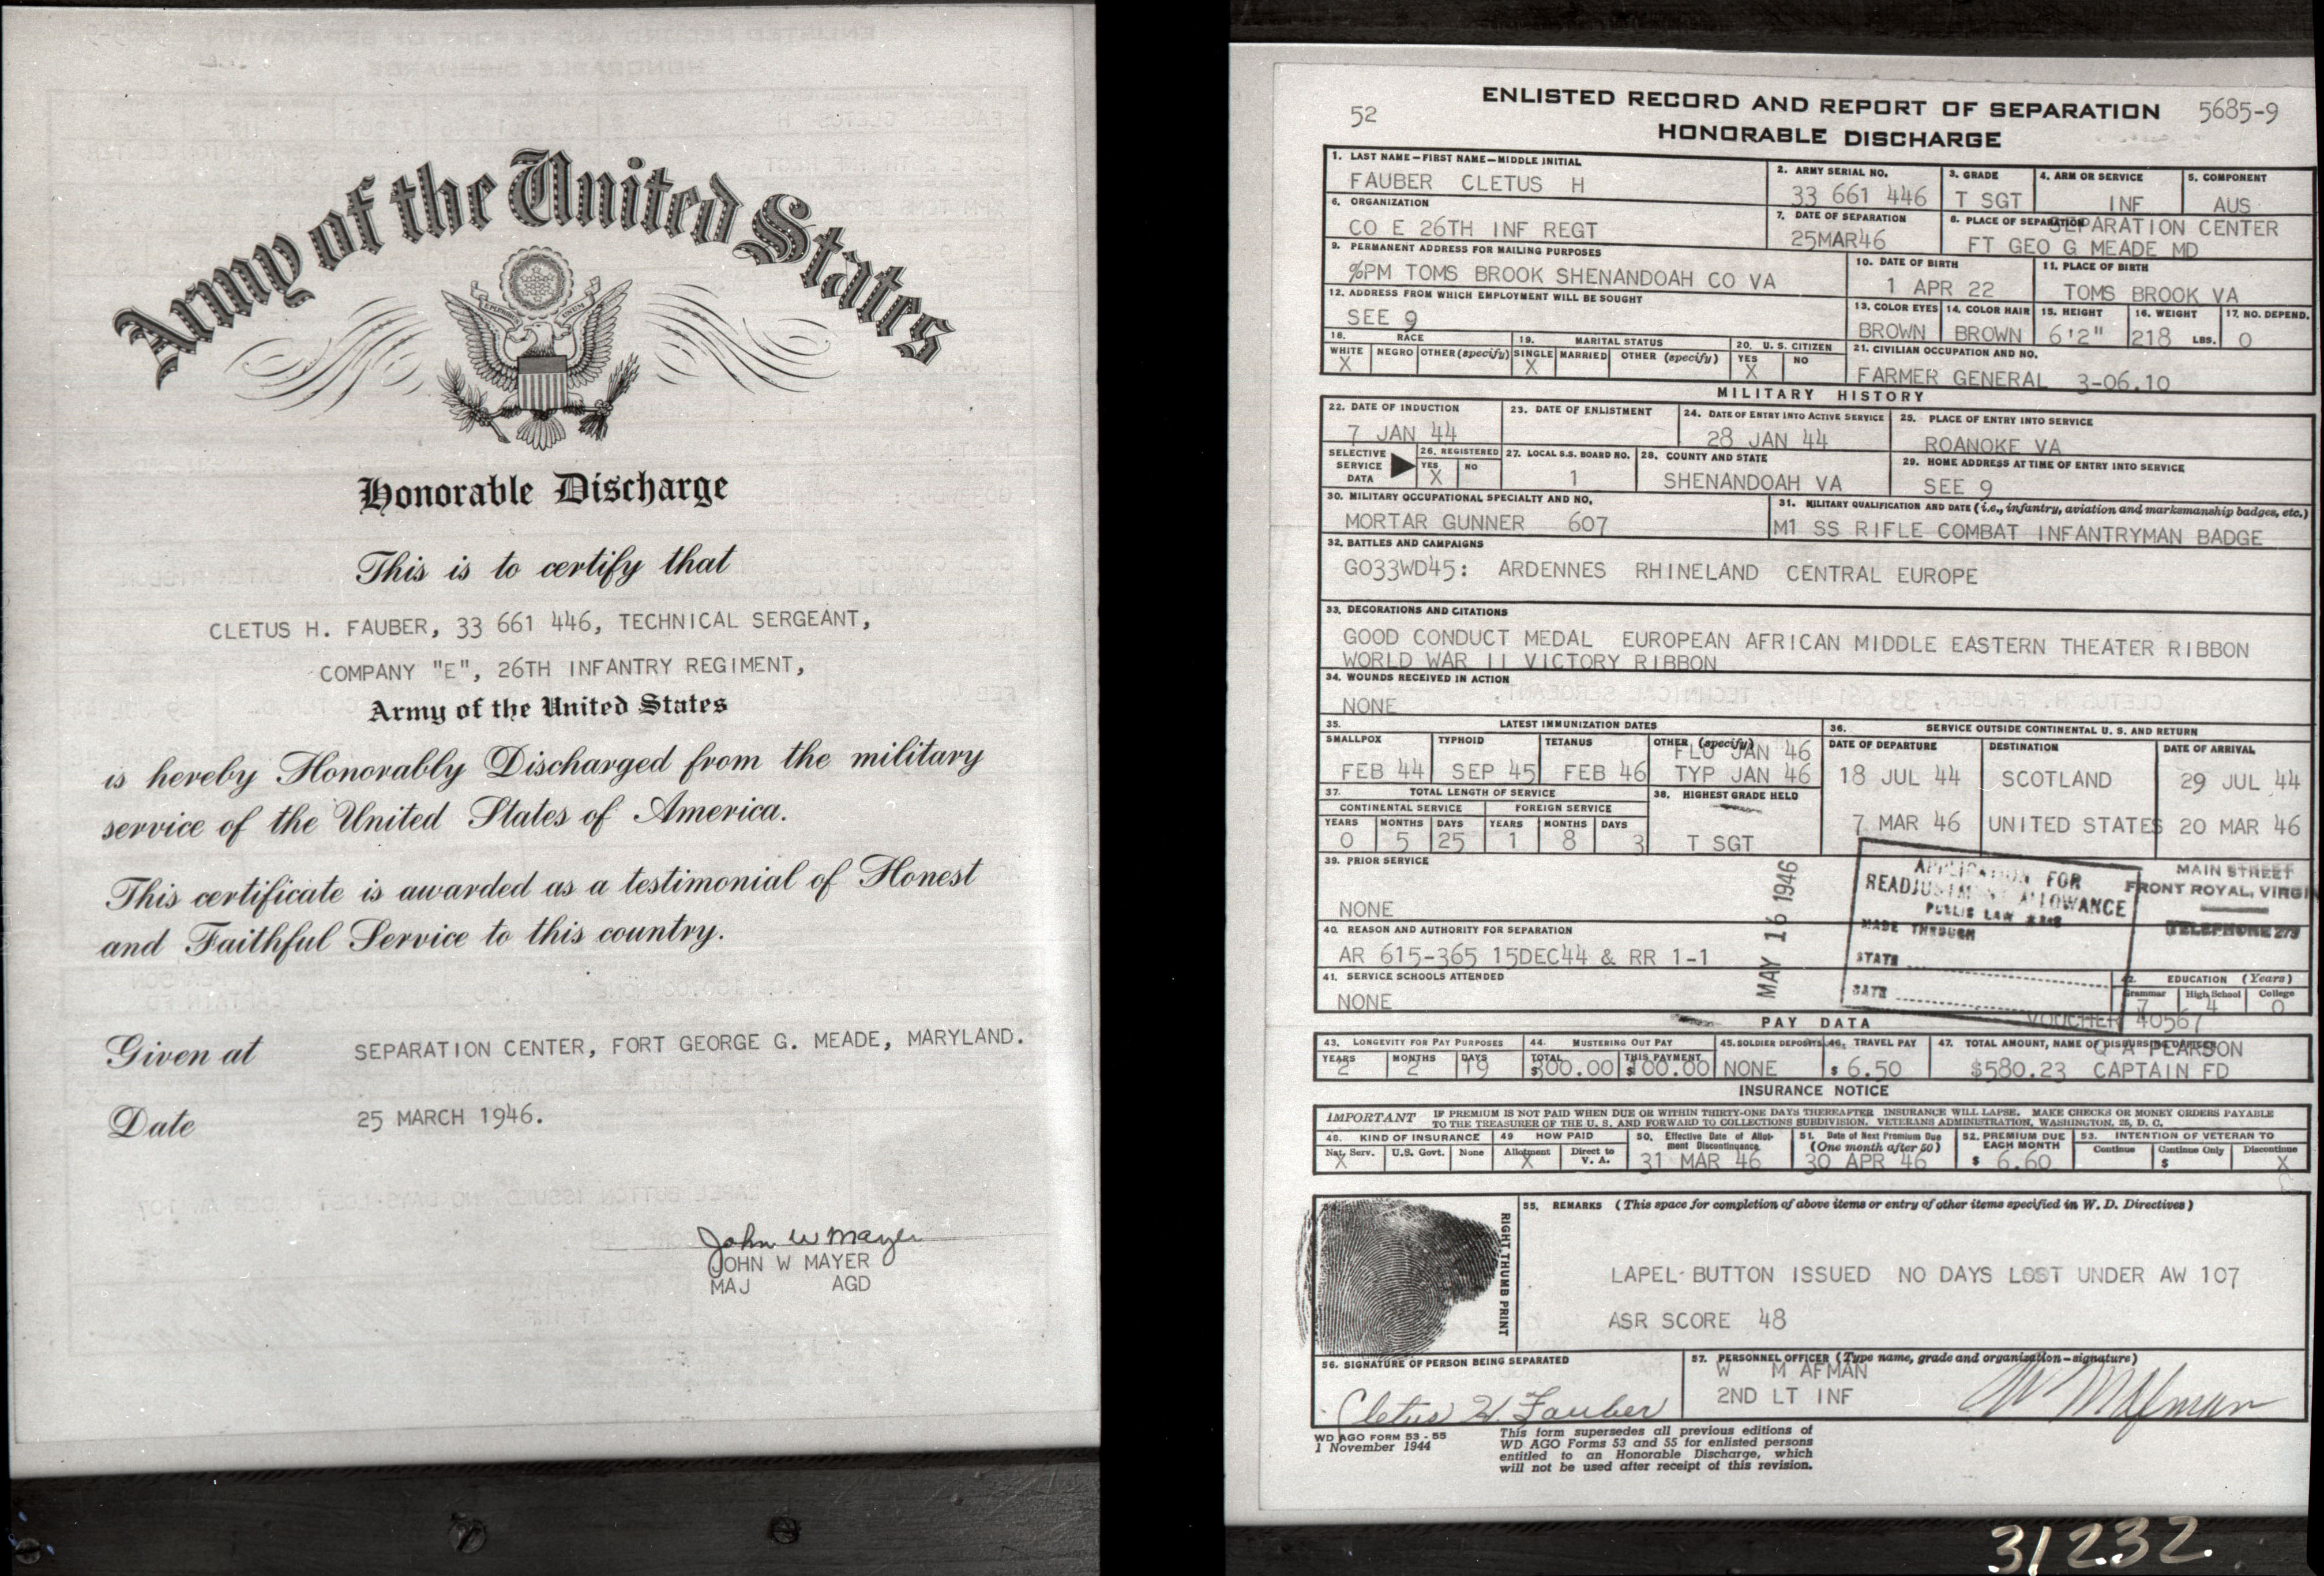 Army of the United States
Honorable Discharge
This is to certify that
CLETUS H. FAUBER, 33 661 446, TECHNICAL SERGEANT,
COMPANY "E", 26TH INFANTRY REGIMENT,
Army of the United States
is hereby Honorably Discharged from the military
service of the United States of America.
This certificate is awarded as a testimonial of Honest
and Faithful Service to this country.
Given at SEPARATION CENTER, FORT GEORGE G. MEADE, MARYLAND.
Date 25 MARCH 1946.
John W Mayer
JOHN W MAYER
MAJ AGD
52 ENLISTED RECORD AND REPORT OF SEPARATION 5685-9
HONORABLE DISCHARGE
1. LAST NAME—FIRST NAME—MIDDLE INITIAL 2. ARMY SERIAL NO. 3. GRADE 4. ARM OR SERVICE 5. COMPONENT
FAUBER CLETUS H 33 661 446 T SGT INF AUS
6. ORGANIZATION 7. DATE OF SEPARATION 8. PLACE OF SEPARATION SEPARATION CENTER
CO E 26TH INF REGT 25MAR46 FT GEO G MEADE MD
9. PERMANENT ADDRESS FOR MAILING PURPOSES 10. DATE OF BIRTH 11. PLACE OF BIRTH
%PM TOMS BROOK SHENANDOAH CO VA 1 APR 22 TOMS BROOK VA
12. ADDRESS FROM WHICH EMPLOYMENT WILL BE SOUGHT 13. COLOR EYES 14. COLOR HAIR 15. HEIGHT 16. WEIGHT 17. NO. DEPEND.
SEE 9 BROWN BROWN 6'2" 218 LBS. 0
18. RACE 19. MARITAL STATUS 20. U. S. CITIZEN 21. CIVILIAN OCCUPATION AND NO.
WHITE NEGRO OTHER (specify) SINGLE MARRIED OTHER (specify) YES NO
X X X FARMER GENERAL 3-06.10
MILITARY HISTORY
22. DATE OF INDUCTION 23. DATE OF ENLISTMENT 24. DATE OF ENTRY INTO ACTIVE SERVICE 25. PLACE OF ENTRY INTO SERVICE
7 JAN 44 28 JAN 44 ROANOKE VA
SELECTIVE SERVICE DATA 26. REGISTERED 27. LOCAL S.S. BOARD NO. 28. COUNTY AND STATE 29. HOME ADDRESS AT TIME OF ENTRY INTO SERVICE
YES NO
X 1 SHENANDOAH VA SEE 9
30. MILITARY OCCUPATIONAL SPECIALTY AND NO. 31. MILITARY QUALIFICATION AND DATE (i.e., infantry, aviation and marksmanship badges, etc.)
MORTAR GUNNER 607 M1 SS RIFLE COMBAT INFANTRYMAN BADGE
32. BATTLES AND CAMPAIGNS
GO33WD45: ARDENNES RHINELAND CENTRAL EUROPE
33. DECORATIONS AND CITATIONS
GOOD CONDUCT MEDAL EUROPEAN AFRICAN MIDDLE EASTERN THEATER RIBBON
WORLD WAR II VICTORY RIBBON
34. WOUNDS RECEIVED IN ACTION
NONE
35. LATEST IMMUNIZATION DATES 36. SERVICE OUTSIDE CONTINENTAL U. S. AND RETURN
SMALLPOX TYPHOID TETANUS OTHER (specify) DATE OF DEPARTURE DESTINATION DATE OF ARRIVAL
FLU JAN 46
FEB 44 SEP 45 FEB 46 TYP JAN 46 18 JUL 44 SCOTLAND 29 JUL 44
37. TOTAL LENGTH OF SERVICE 38. HIGHEST GRADE HELD
CONTINENTAL SERVICE FOREIGN SERVICE
YEARS MONTHS DAYS YEARS MONTHS DAYS 7 MAR 46 UNITED STATES 20 MAR 46
0 5 25 1 8 3 T SGT
39. PRIOR SERVICE
NONE
MAY 16 1946
APPLICATION FOR
READJUSTMENT ALLOWANCE
PUBLIC LAW
MADE THROUGH
STATE
DATE
MAIN STREET
FRONT ROYAL, VIRGI
TELEPHONE 273
40. REASON AND AUTHORITY FOR SEPARATION
AR 615-365 15DEC44 & RR 1-1
41. SERVICE SCHOOLS ATTENDED 42. EDUCATION (Years)
NONE Grammar High School College
7 4 0
PAY DATA VOUCHER 40567
43. LONGEVITY FOR PAY PURPOSES 44. MUSTERING OUT PAY 45. SOLDIER DEPOSITS 46. TRAVEL PAY 47. TOTAL AMOUNT, NAME OF DISBURSING OFFICER
YEARS MONTHS DAYS TOTAL THIS PAYMENT Q A PEARSON
2 2 19 $300.00 $100.00 NONE $ 6.50 $580.23 CAPTAIN FD
INSURANCE NOTICE
IMPORTANT IF PREMIUM IS NOT PAID WHEN DUE OR WITHIN THIRTY-ONE DAYS THEREAFTER INSURANCE WILL LAPSE. MAKE CHECKS OR MONEY ORDERS PAYABLE
TO THE TREASURER OF THE U. S. AND FORWARD TO COLLECTIONS SUBDIVISION, VETERANS ADMINISTRATION, WASHINGTON, 25, D. C.
48. KIND OF INSURANCE 49 HOW PAID 50. Effective Date of Allotment Discontinuance 51. Date of Next Premium Due (One month after 50) 52. PREMIUM DUE EACH MONTH 53. INTENTION OF VETERAN TO
Nat. Serv. U.S. Govt. None Allotment Direct to V. A. Continue Continue Only Discontinue
X X 31 MAR 46 30 APR 46 $ 6.60 $ X
RIGHT THUMB PRINT
55. REMARKS (This space for completion of above items or entry of other items specified in W. D. Directives)
LAPEL BUTTON ISSUED NO DAYS LOST UNDER AW 107
ASR SCORE 48
56. SIGNATURE OF PERSON BEING SEPARATED 57. PERSONNEL OFFICER (Type name, grade and organization—signature)
W M AFMAN
2ND LT INF
Cletus H. Fauber W M Afman
WD AGO FORM 53 - 55
1 November 1944
This form supersedes all previous editions of
WD AGO Forms 53 and 55 for enlisted persons
entitled to an Honorable Discharge, which
will not be used after receipt of this revision.
31232.